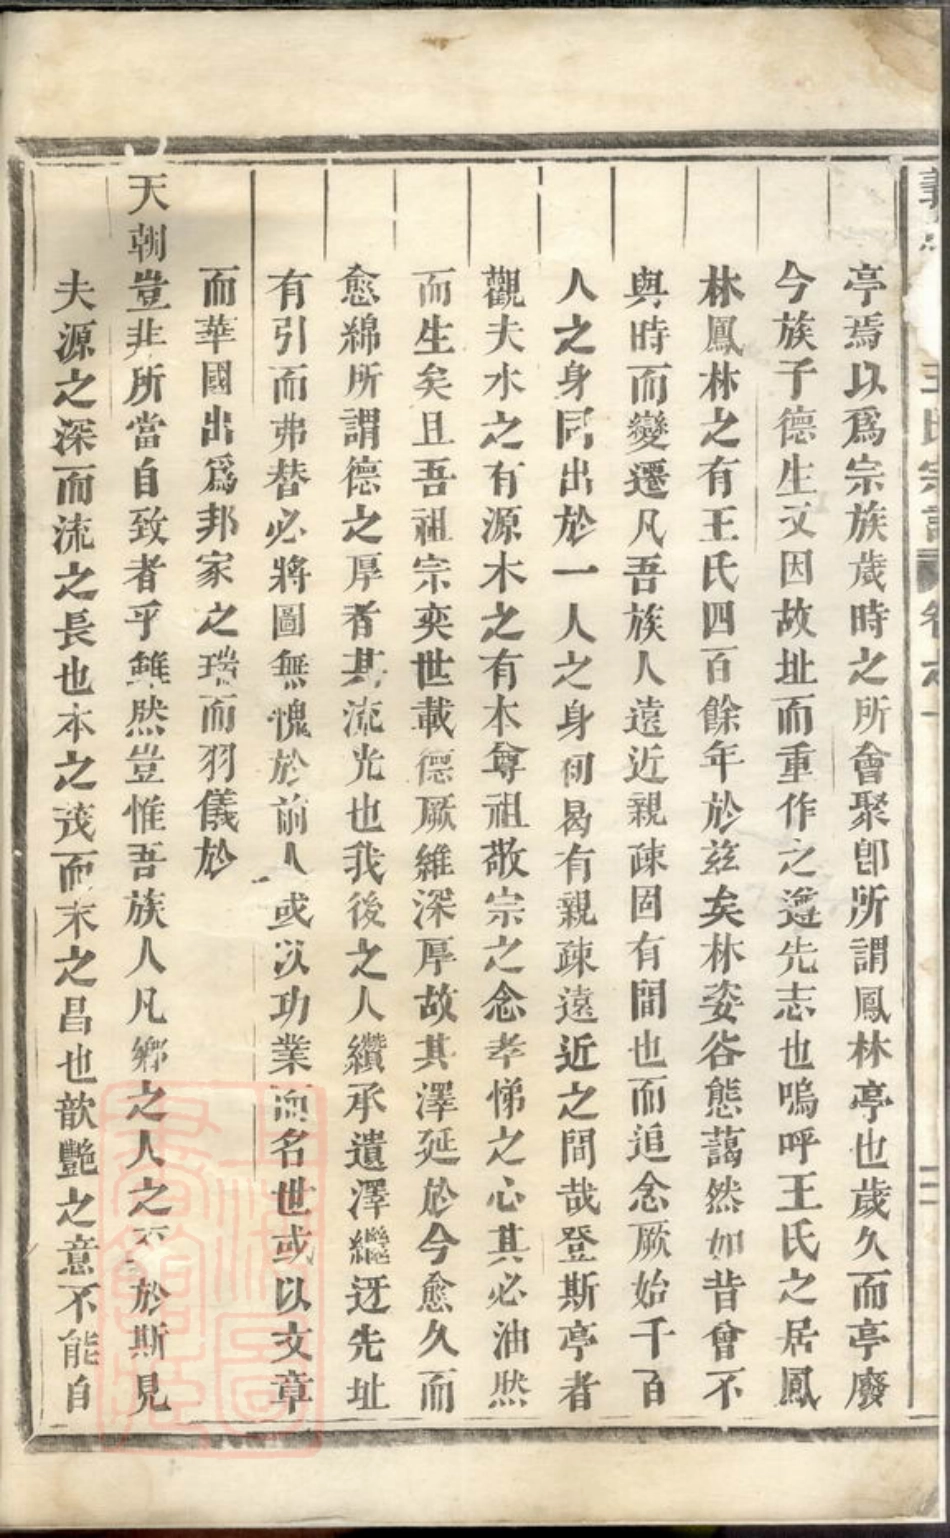 王氏宗譜 卷之一 二
亭焉以爲宗族歲時之所會聚卽所謂鳳林亭也歲久而亭廢
今族子德生又因故址而重作之遵先志也嗚呼王氏之居鳳
林鳳林之有王氏四百餘年於茲矣林姿谷態藹然如昔曾不
與時而變遷凡吾族人遠近親疎固有間也而追念厥始千百
人之身同出於一人之身何曷有親疎遠近之間哉登斯亭者
觀夫水之有源木之有本尊祖敬宗之念孝悌之心其必油然
而生矣且吾祖宗奕世載德厥維深厚故其澤延於今愈久而
愈綿所謂德之厚者其流光也我後之人纘承遺澤繼迓先址
有引而弗替必將圖無愧於前人或以功業而名世或以文章
而華國出爲邦家之瑞而羽儀於
天朝豈非所當自致者乎雖然豈惟吾族人凡鄉之人之至於斯見
夫源之深而流之長也本之茂而末之昌也歆艷之意不能自